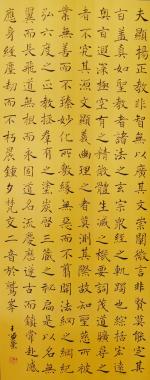 夫顯揚正教非智無以廣其文崇闡微言非賢莫能定其
旨蓋真如聖教者諸法之玄宗眾經之軌躅也綜括宏遠
奧旨遐深極空有之精微體生滅之機要詞茂道曠尋之
者不究其源文顯義幽理之者莫測其際故知聖慈所被
業無善而不臻妙化所敷緣無惡而不翦開法網之綱紀
弘六度之正教拯群有之塗炭啟三藏之秘扃是以名無
翼而長飛道無根而永固道名流慶歷遂古而鎮常赴感
應身經塵劫而不朽晨鐘夕梵交二音於鷲峯